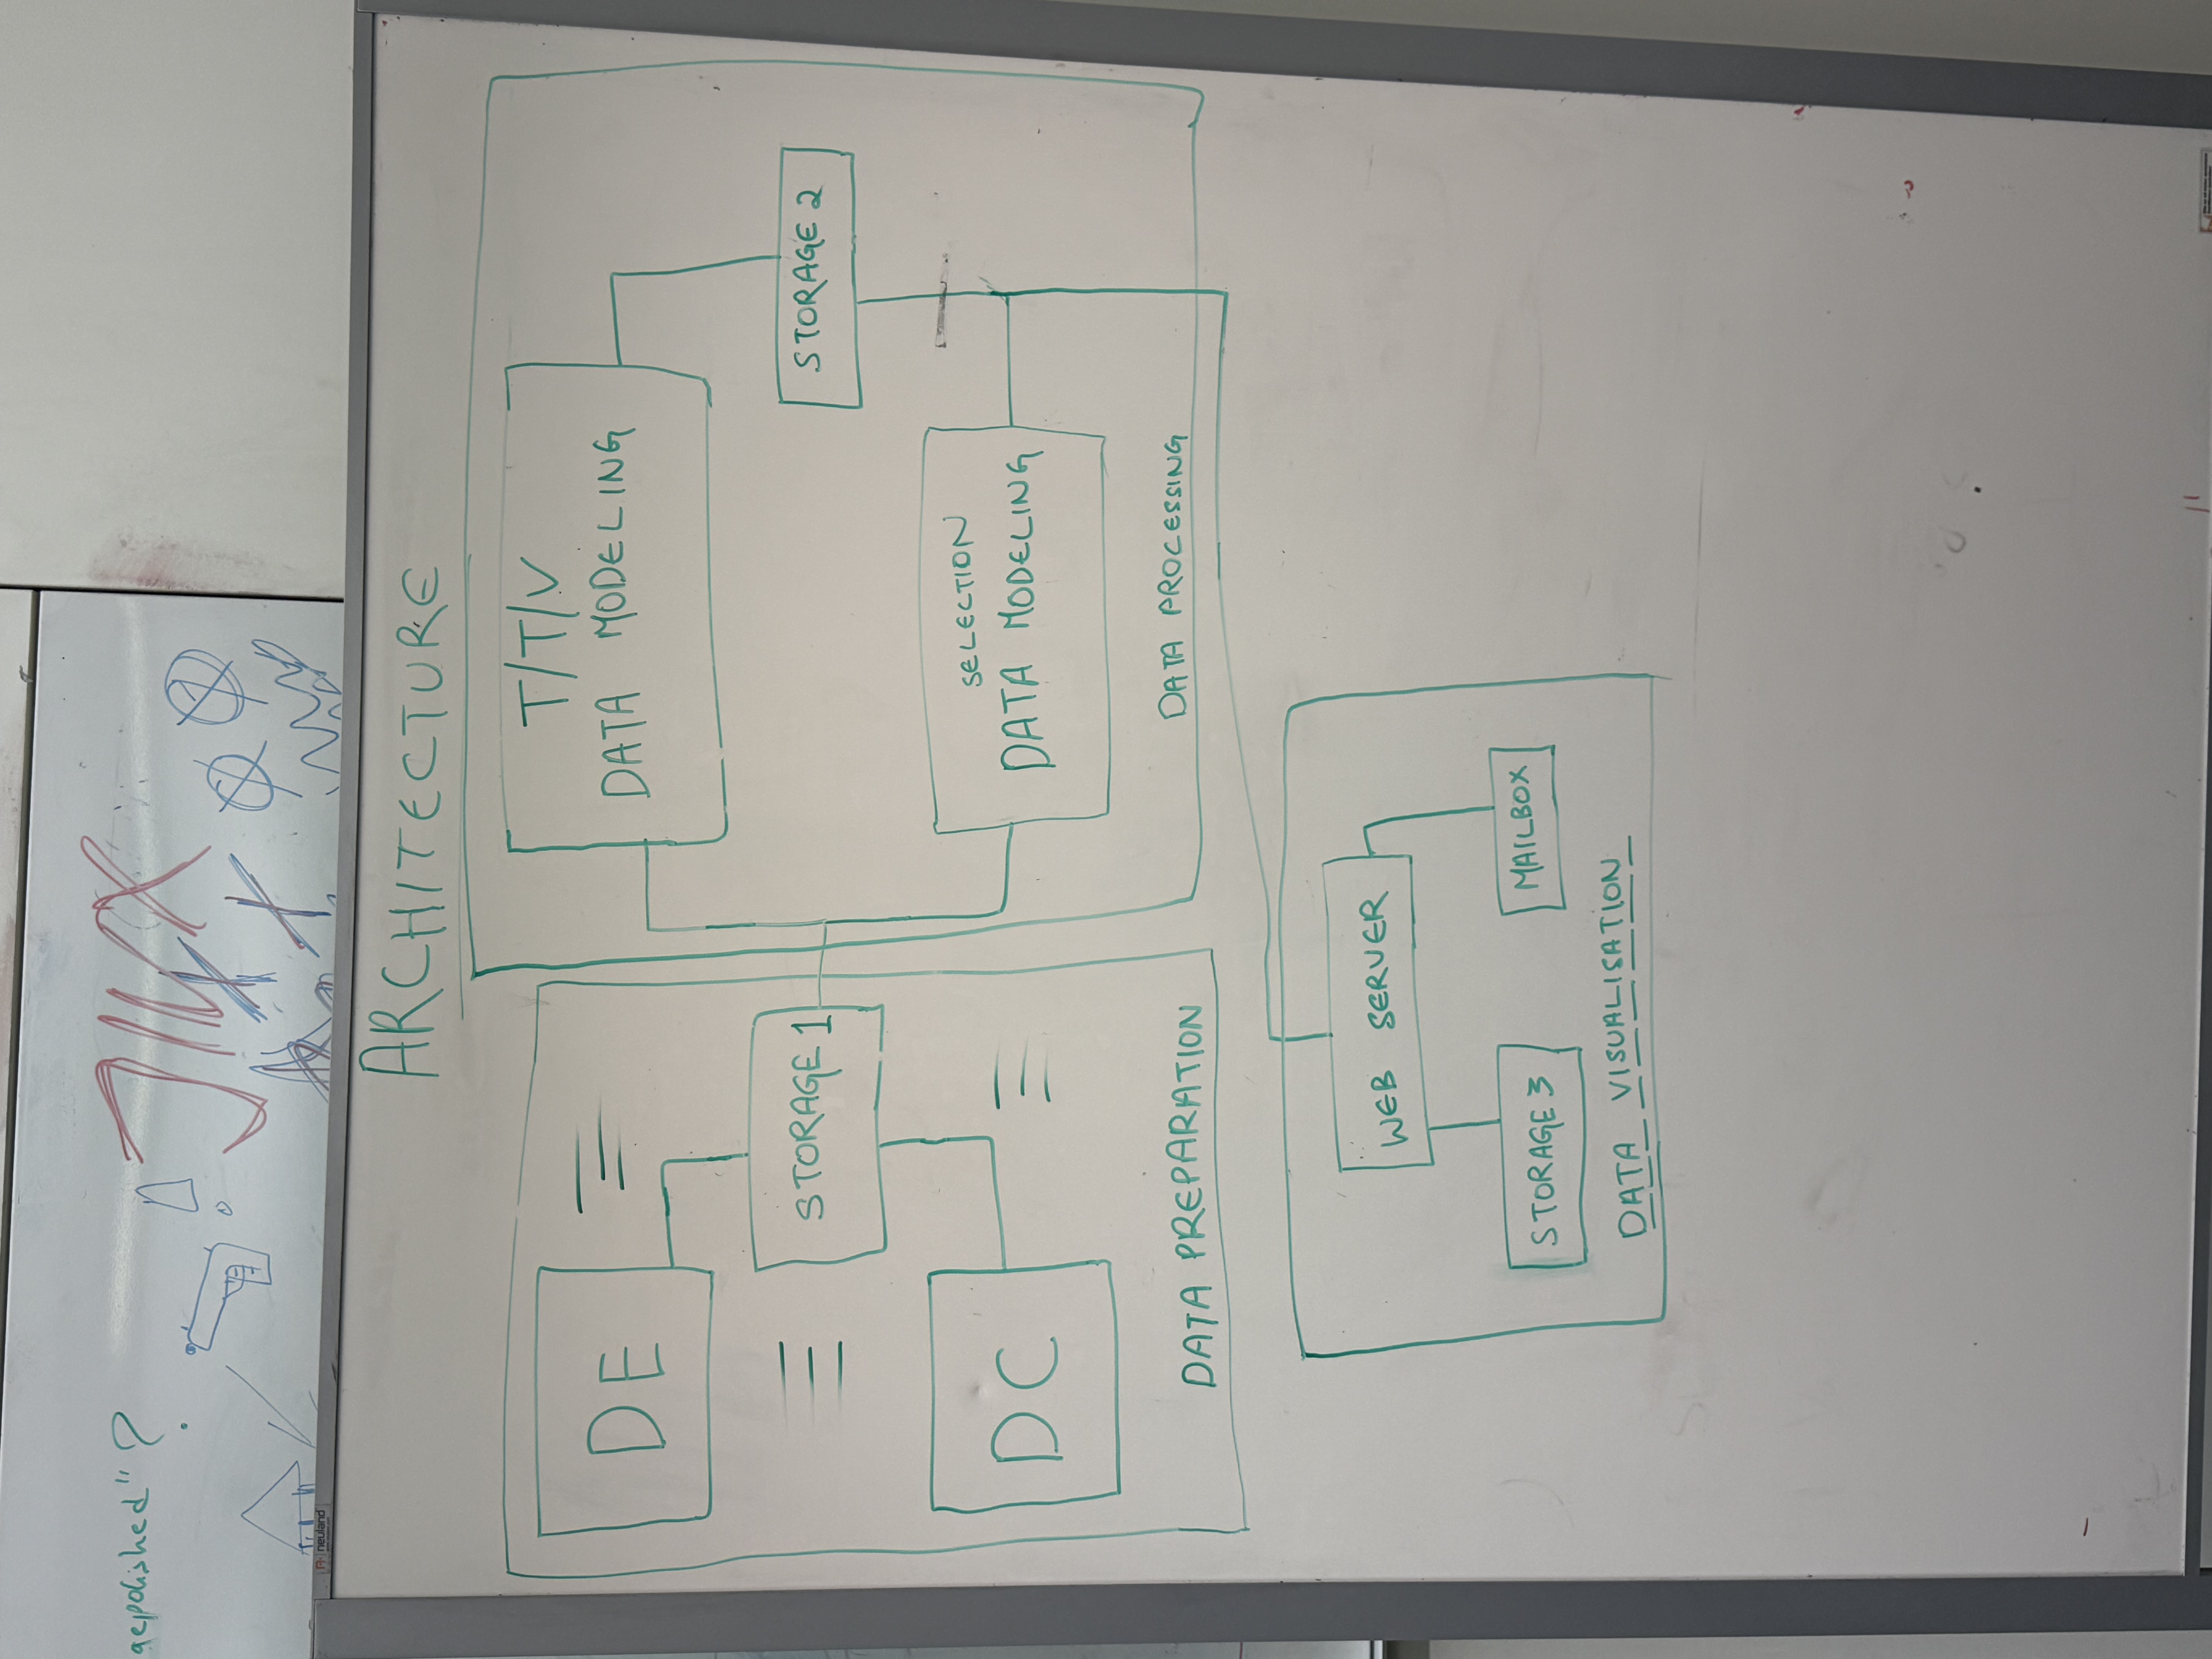 gepolished" ?
neuland
ARCHITECTURE
DE
STORAGE 1
DC
DATA PREPARATION
T/T/V
DATA MODELING
STORAGE 2
SELECTION
DATA MODELING
DATA PROCESSING
WEB SERVER
STORAGE 3
MAILBOX
DATA VISUALISATION